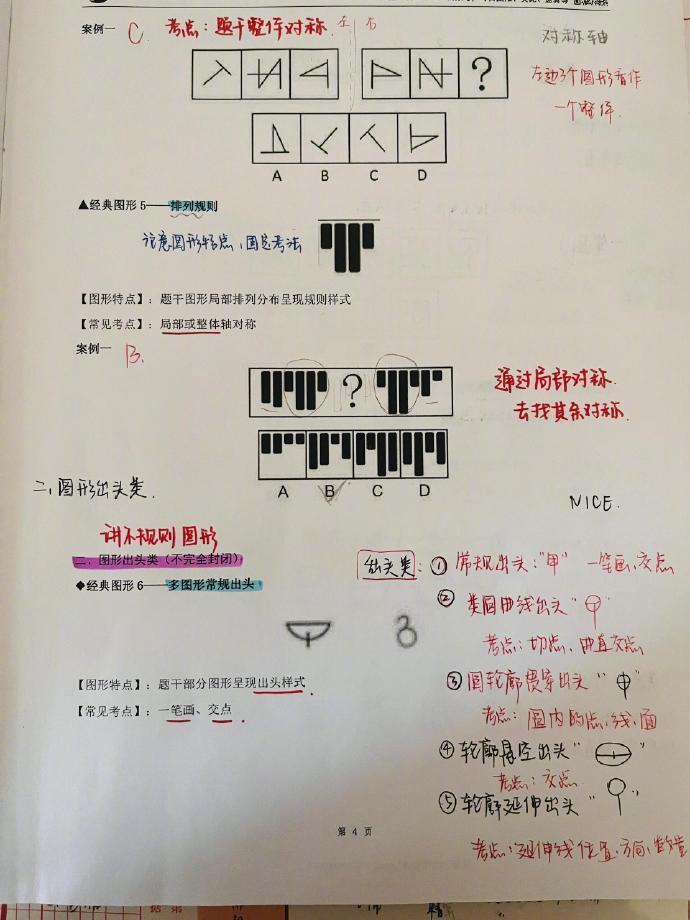 案例一 C 考点：题干整体对称 左 右
对称轴
左边3个图形看作
一个整体.
?
A B C D
▲经典图形5——排列规则
注意图形特点，固定考法
【图形特点】：题干图形局部排列分布呈现规则样式
【常见考点】：局部或整体轴对称
案例一 B.
?
通过局部对称.
去找其余对称.
A B C D
二、图形出头类.
NICE.
讲不规则图形
二、图形出头类（不完全封闭）
◆经典图形6——多图形常规出头
出头类：① 常规出头："甲" 一笔画、交点
② 类圆曲线出头" "
考点：切点、曲直交点
【图形特点】：题干部分图形呈现出头样式.
③ 圆轮廓贯穿出头" "
【常见考点】：一笔画、交点.
考点：圆内的点、线、面
④ 轮廓悬空出头" "
考点：交点
⑤ 轮廓延伸出头" "
第 4 页
考点：延伸线位置、方向、数量